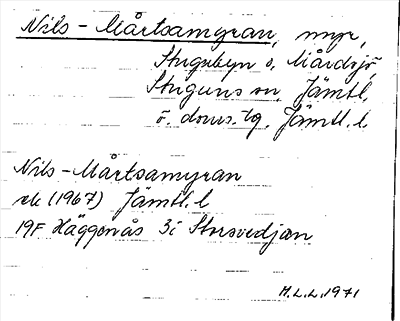 Nils-Mårtsamyran, myr,
Stugubyn o. Mårdsjö,
Stuguns sn, Jämtl.
ö. doms.tg. Jämtl. l.
Nils-Mårtsamyran
ek (1967) Jämtl. l
19F Häggenås 3i Storsvedjan
M.L.L. 1971